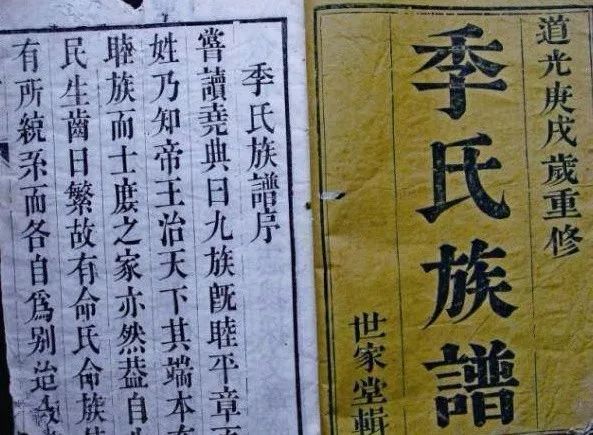 道光庚戌歲重修
季氏族譜
世家堂輯
季氏族譜序
嘗讀堯典曰九族既睦平章
姓乃知帝王治天下其端本
睦族而士庶之家亦然葢自
民生齒日繁故有命氏命族
有所統系而各自爲别迨